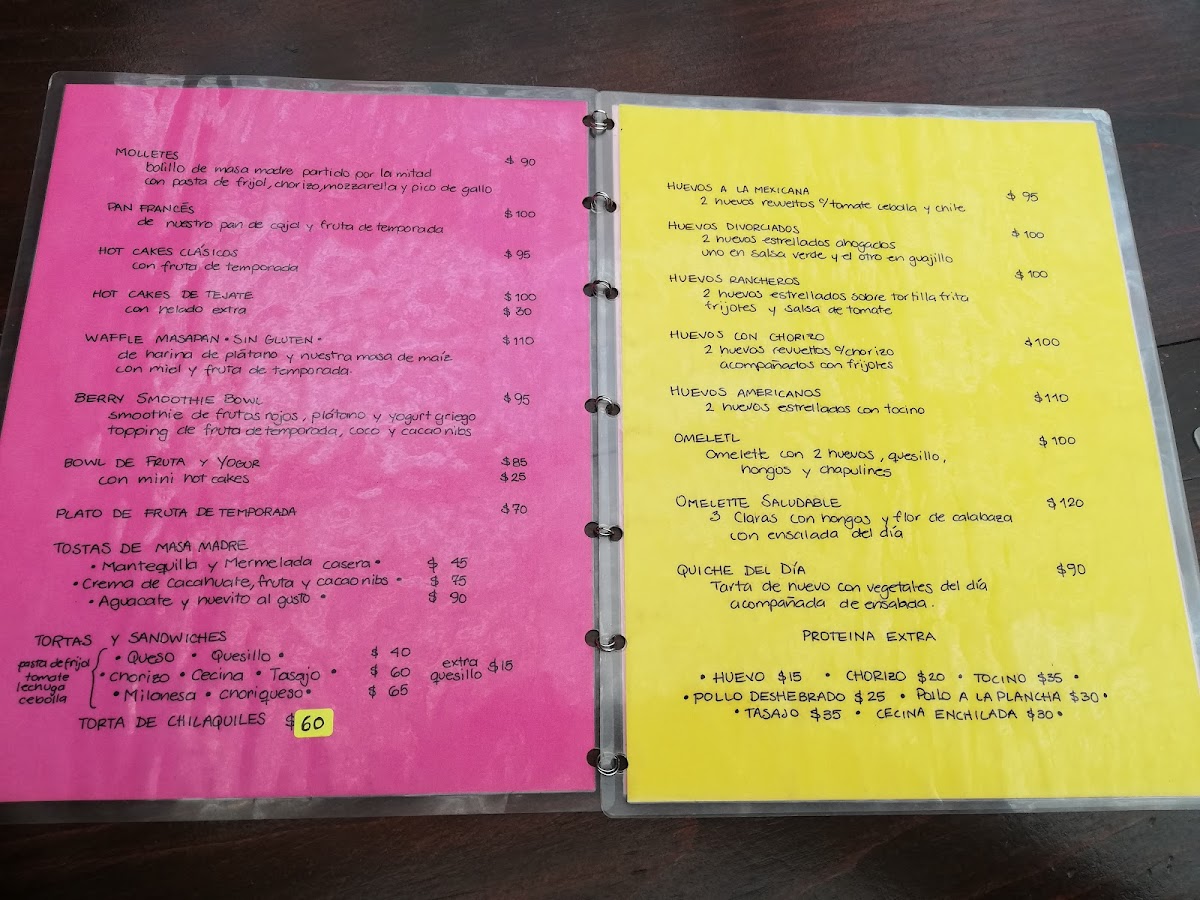 MOLLETES $ 90
bolillo de masa madre partido por la mitad
con pasta de frijol, chorizo, mozzarella y pico de gallo
PAN FRANCÉS $ 100
de nuestro pan de cajal y fruta de temporada
HOT CAKES CLÁSICOS $ 95
con fruta de temporada
HOT CAKES DE TEJATE $ 100
con helado extra $ 30
WAFFLE MASAPAN • SIN GLUTEN • $ 110
de harina de plátano y nuestra masa de maíz
con miel y fruta de temporada.
BERRY SMOOTHIE BOWL $ 95
smoothie de frutas rojos, plátano y yogurt griego
topping de fruta de temporada, coco y cacao nibs
BOWL DE FRUTA Y YOGUR $85
con mini hot cakes $25
PLATO DE FRUTA DE TEMPORADA $70
TOSTAS DE MASA MADRE
• Mantequilla y Mermelada casera • $ 45
• Crema de Cacahuate, fruta y cacao nibs • $ 75
• Aguacate y huevito al gusto • $ 90
TORTAS Y SANDWICHES
pasta de frijol
tomate
lechuga
cebolla
• Queso • Quesillo • $ 40
• Chorizo • Cecina • Tasajo • $ 60
• Milanesa • choriqueso • $ 65
extra
quesillo $15
TORTA DE CHILAQUILES $ 60
HUEVOS A LA MEXICANA $ 95
2 huevos revueltos c/tomate cebolla y chile
HUEVOS DIVORCIADOS $ 100
2 huevos estrellados ahogados
uno en salsa verde y el otro en guajillo
HUEVOS RANCHEROS $ 100
2 huevos estrellados sobre tortilla frita
frijoles y salsa de tomate
HUEVOS CON CHORIZO $100
2 huevos revueltos c/chorizo
acompañados con frijoles
HUEVOS AMERICANOS $110
2 huevos estrellados con tocino
OMELETL $ 100
Omelette con 2 huevos, quesillo,
hongos y chapulines
OMELETTE SALUDABLE $120
3 Claras con hongos y flor de calabaza
con ensalada del día
QUICHE DEL DÍA $90
Tarta de huevo con vegetales del día
acompañada de ensalada.
PROTEINA EXTRA
• HUEVO $15 • CHORIZO $20 • TOCINO $35 •
• POLLO DESHEBRADO $25 • POLLO A LA PLANCHA $30 •
• TASAJO $35 • CECINA ENCHILADA $30 •